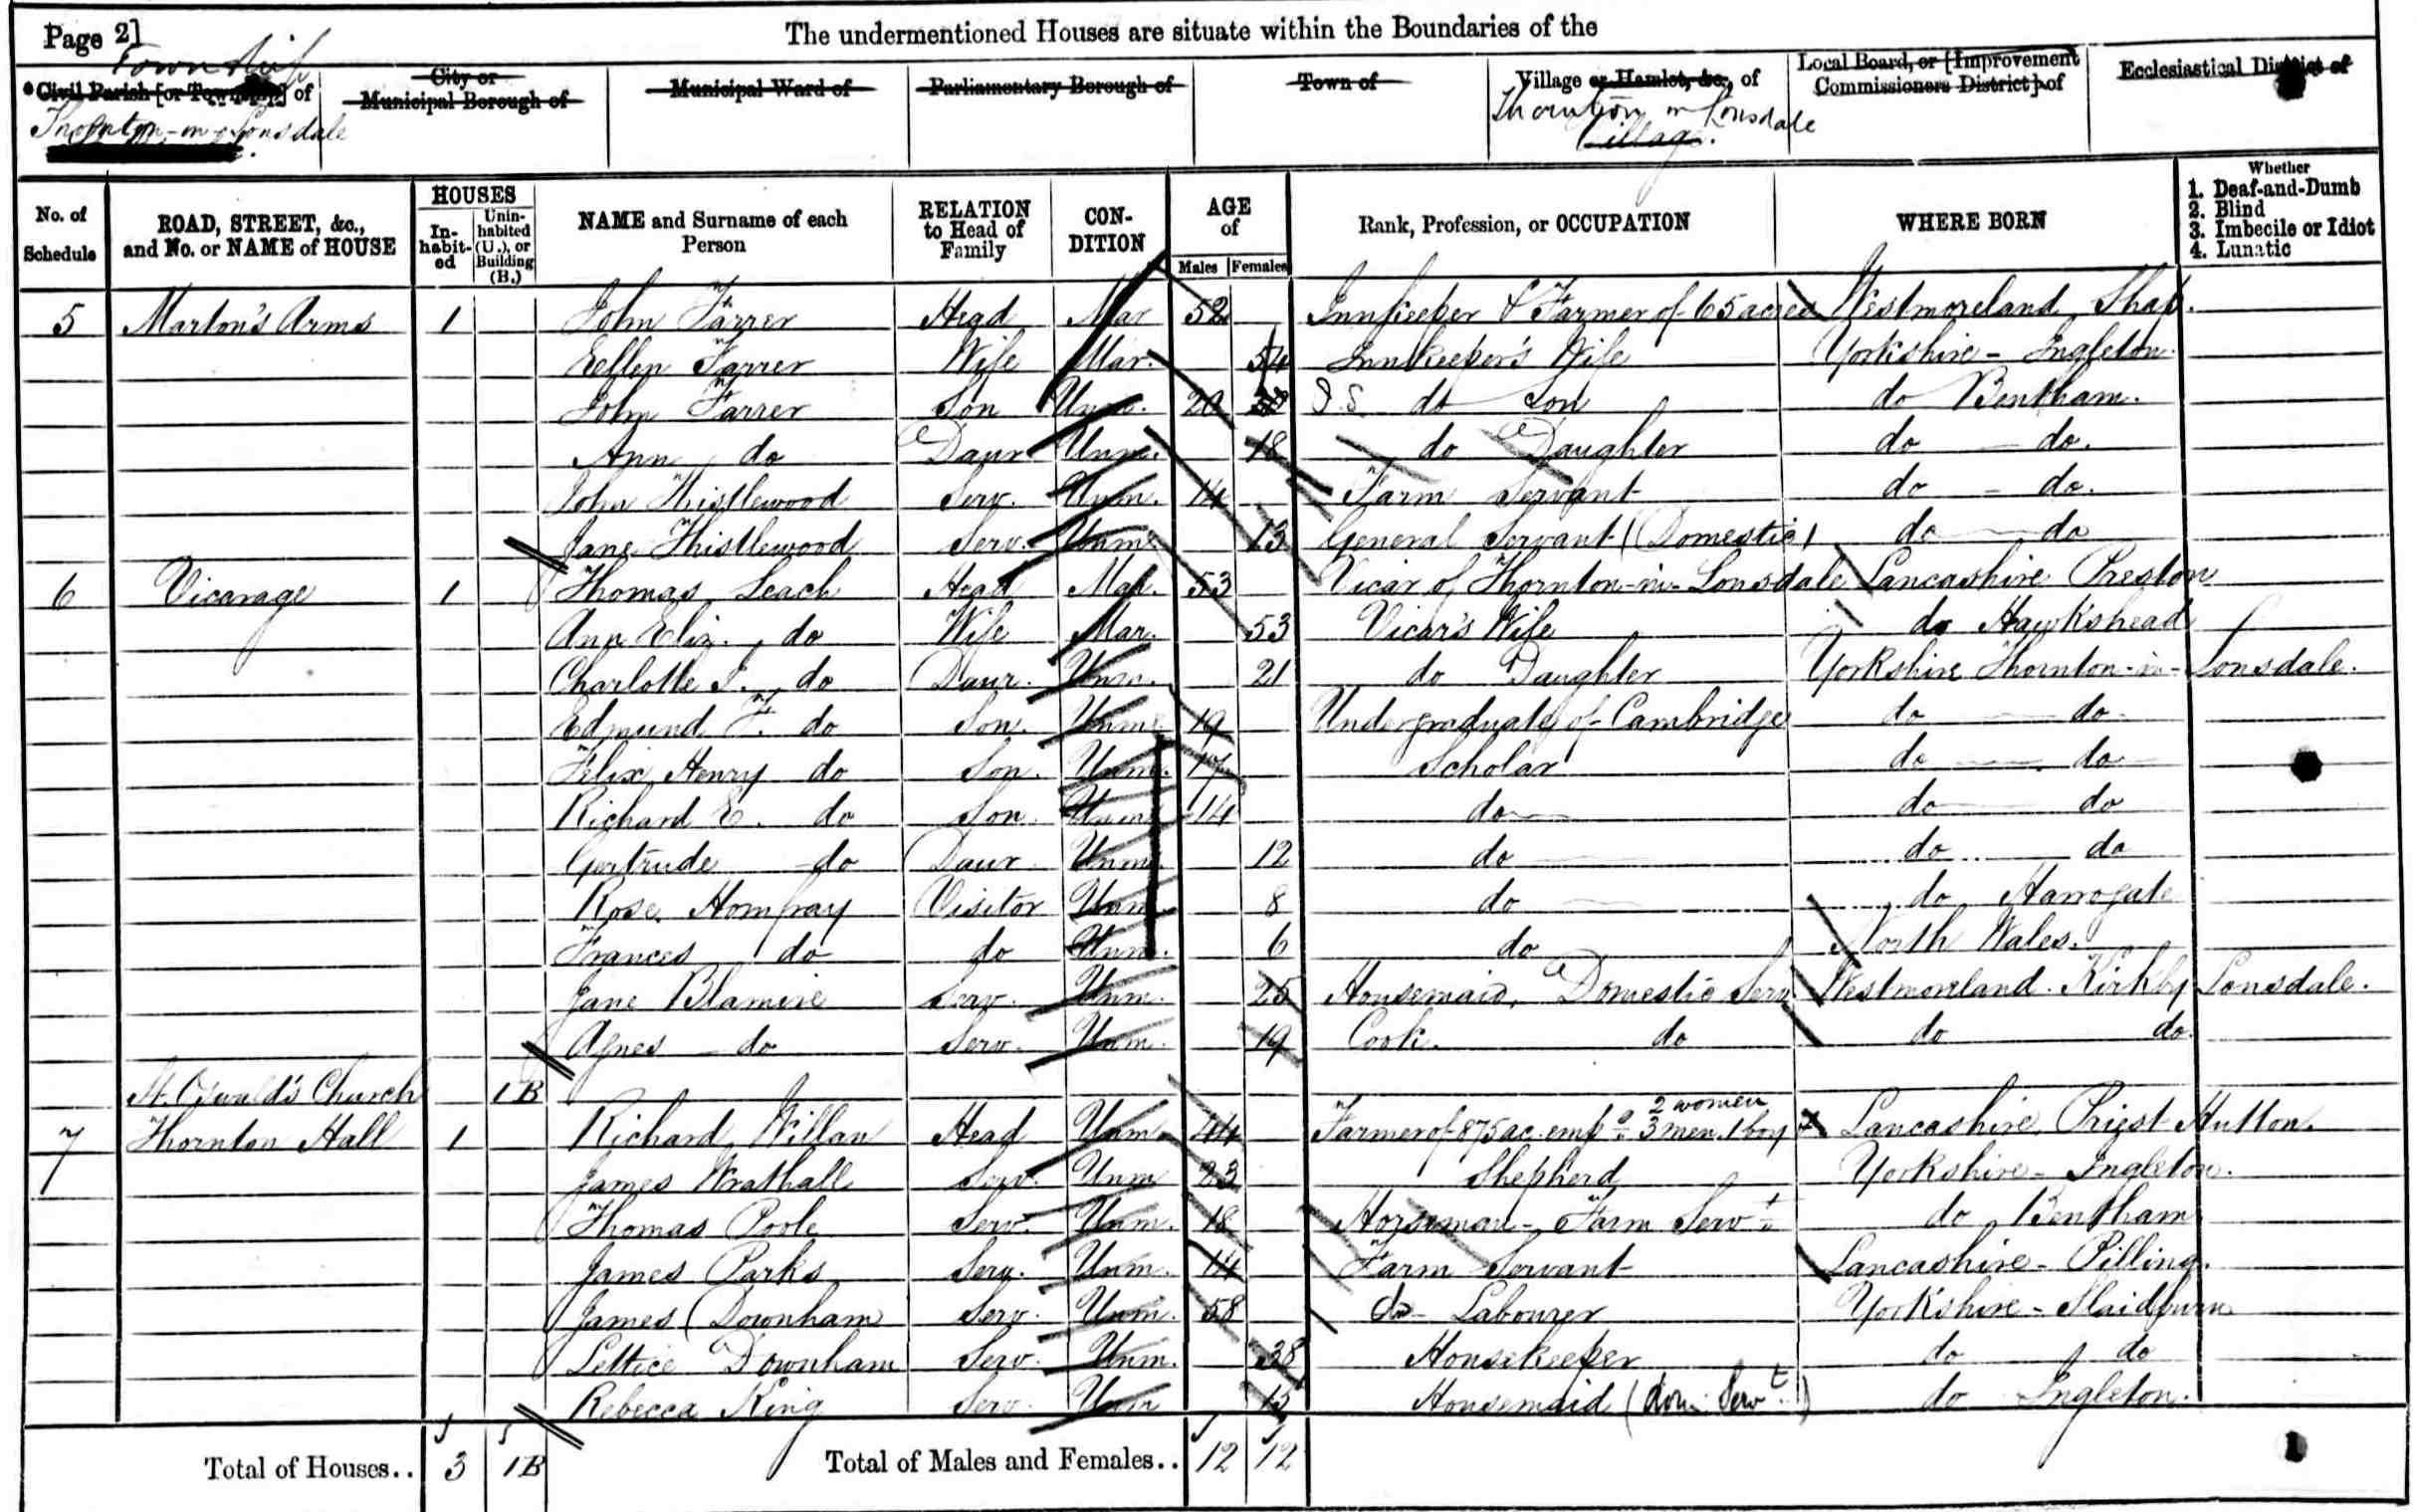 Page 2]
The undermentioned Houses are situate within the Boundaries of the
Township
Civil Parish [or Township] of
City or Municipal Borough of
Municipal Ward of
Parliamentary Borough of
Town of
Village or Hamlet, &c., of
Local Board, or [Improvement Commissioners District] of
Ecclesiastical District of
Thornton-in-Lonsdale
Thornton in Lonsdale
Village.
No. of Schedule
ROAD, STREET, &c., and No. or NAME of HOUSE
HOUSES
Inhabited
Uninhabited (U.), or Building (B.)
NAME and Surname of each Person
RELATION to Head of Family
CONDITION
AGE of
Males Females
Rank, Profession, or OCCUPATION
WHERE BORN
Whether
1. Deaf-and-Dumb
2. Blind
3. Imbecile or Idiot
4. Lunatic
5 Marton's Arms 1 John Farrer Head Mar 52 Innkeeper & Farmer of 65 acres Westmoreland Shap.
Eellen Farrer Wife Mar. 54 Innkeeper's Wife Yorkshire - Ingleton
John Farrer Son Unm. 20 do Son do Bentham.
Ann do Daur. Unm. 18 do Daughter do - do.
John Thistlewood Serv. Unm. 14 Farm Servant do - do.
Jane Thistlewood Serv. Unm. 13 General Servant (Domestic) do - do
6 Vicarage 1 Thomas Leach Head Mar. 53 Vicar of Thornton-in-Lonsdale Lancashire Preston
Ann Eliz. do Wife Mar. 53 Vicar's Wife do Hawkshead
Charlotte J. do Daur. Unm. 21 do Daughter Yorkshire Thornton-in-Lonsdale.
Edmund F. do Son. Unm. 19 Undergraduate of Cambridge do - do
Felix Henry do Son. Unm. 17 Scholar do - do
Richard E. do Son. Unm. 14 do do do
Gertrude do Daur. Unm. 12 do do do
Rose Homfray Visitor Unm. 8 do do Harrogate
Frances do do Unm. 6 do North Wales.
Jane Blamire Serv. Unm. 25 Housemaid, Domestic Serv. Westmoreland. Kirkby Lonsdale.
Agnes do Serv. Unm. 19 Cook. do do do.
St. Oswald's Church 1B
7 Thornton Hall 1 Richard Willan Head Unm. 44 Farmer of 875 ac. emp.g 3 men 1 boy 2 women Lancashire, Priest Hutton.
James Wrathall Serv. Unm 23 Shepherd Yorkshire - Ingleton.
Thomas Poole Serv. Unm. 18 Horseman - Farm Servt do Bentham
James Parks Serv. Unm. 14 Farm Servant Lancashire - Pilling.
James Downham Serv. Unm. 58 do Labourer Yorkshire - Slaidburn
Lettice Downham Serv. Unm. 38 Housekeeper do do
Rebecca King Serv. Unm 15 Housemaid (dom. Servt) do Ingleton.
Total of Houses.. 3 1B Total of Males and Females.. 12 12